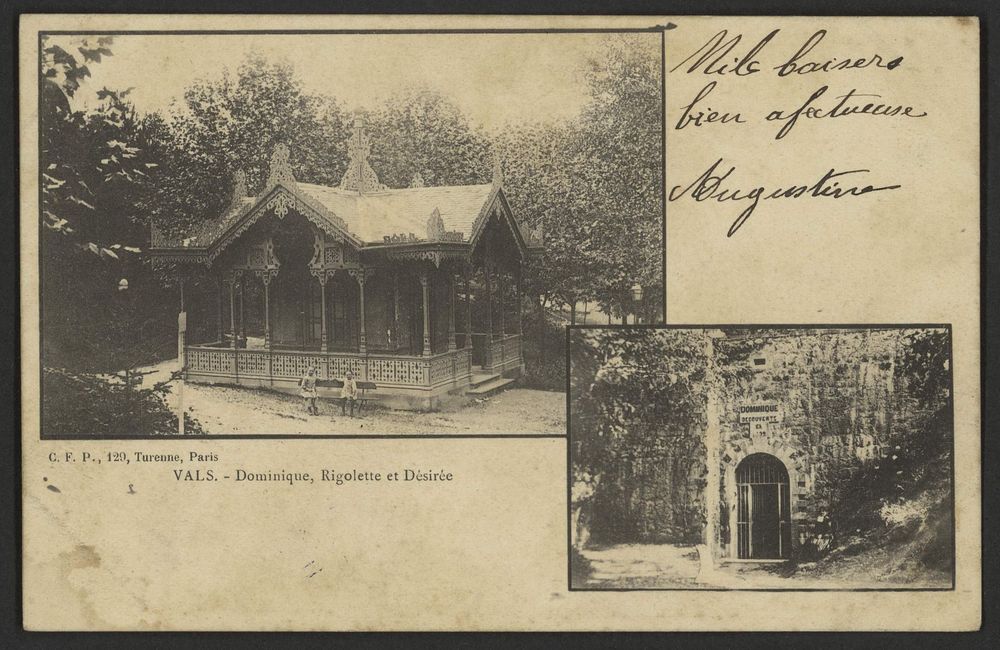 Mile baisers
bien afectueuse
Augustine
DOMINIQUE
DECOUVERTE
EN
C. F. P., 129, Turenne, Paris
VALS. - Dominique, Rigolette et Désirée